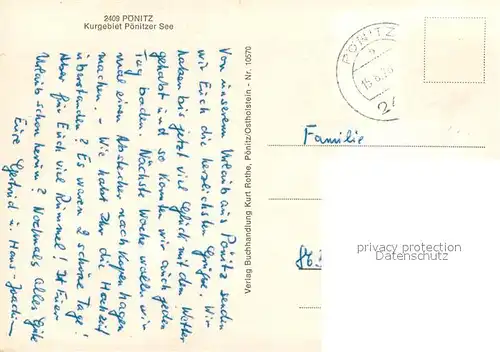 2409 PÖNITZ
Kurgebiet Pönitzer See
Von unserem Urlaub aus Pönitz senden
wir Euch die herzlichsten Grüße. Wir
haben bis jetzt viel Glück mit dem Wetter
gehabt und so konnten wir auch jeden
Tag baden. Nächste Woche wollen wir
mal einen Abstecher nach Kopenhagen
machen. - Wie habt Ihr die Hochzeit
überstanden? Es waren 2 schöne Tage!
Aber für Euch viel Rummel! Ist Euer
Urlaub schon herum? Nochmals alles Gute
Eure Gertrud u. Hans-Joachim
Verlag Buchhandlung Kurt Rothe, Pönitz/Ostholstein - Nr. 10570
PÖNITZ
15.6.
24
Familie
privacy protection
AnsichtskartenVersand.com